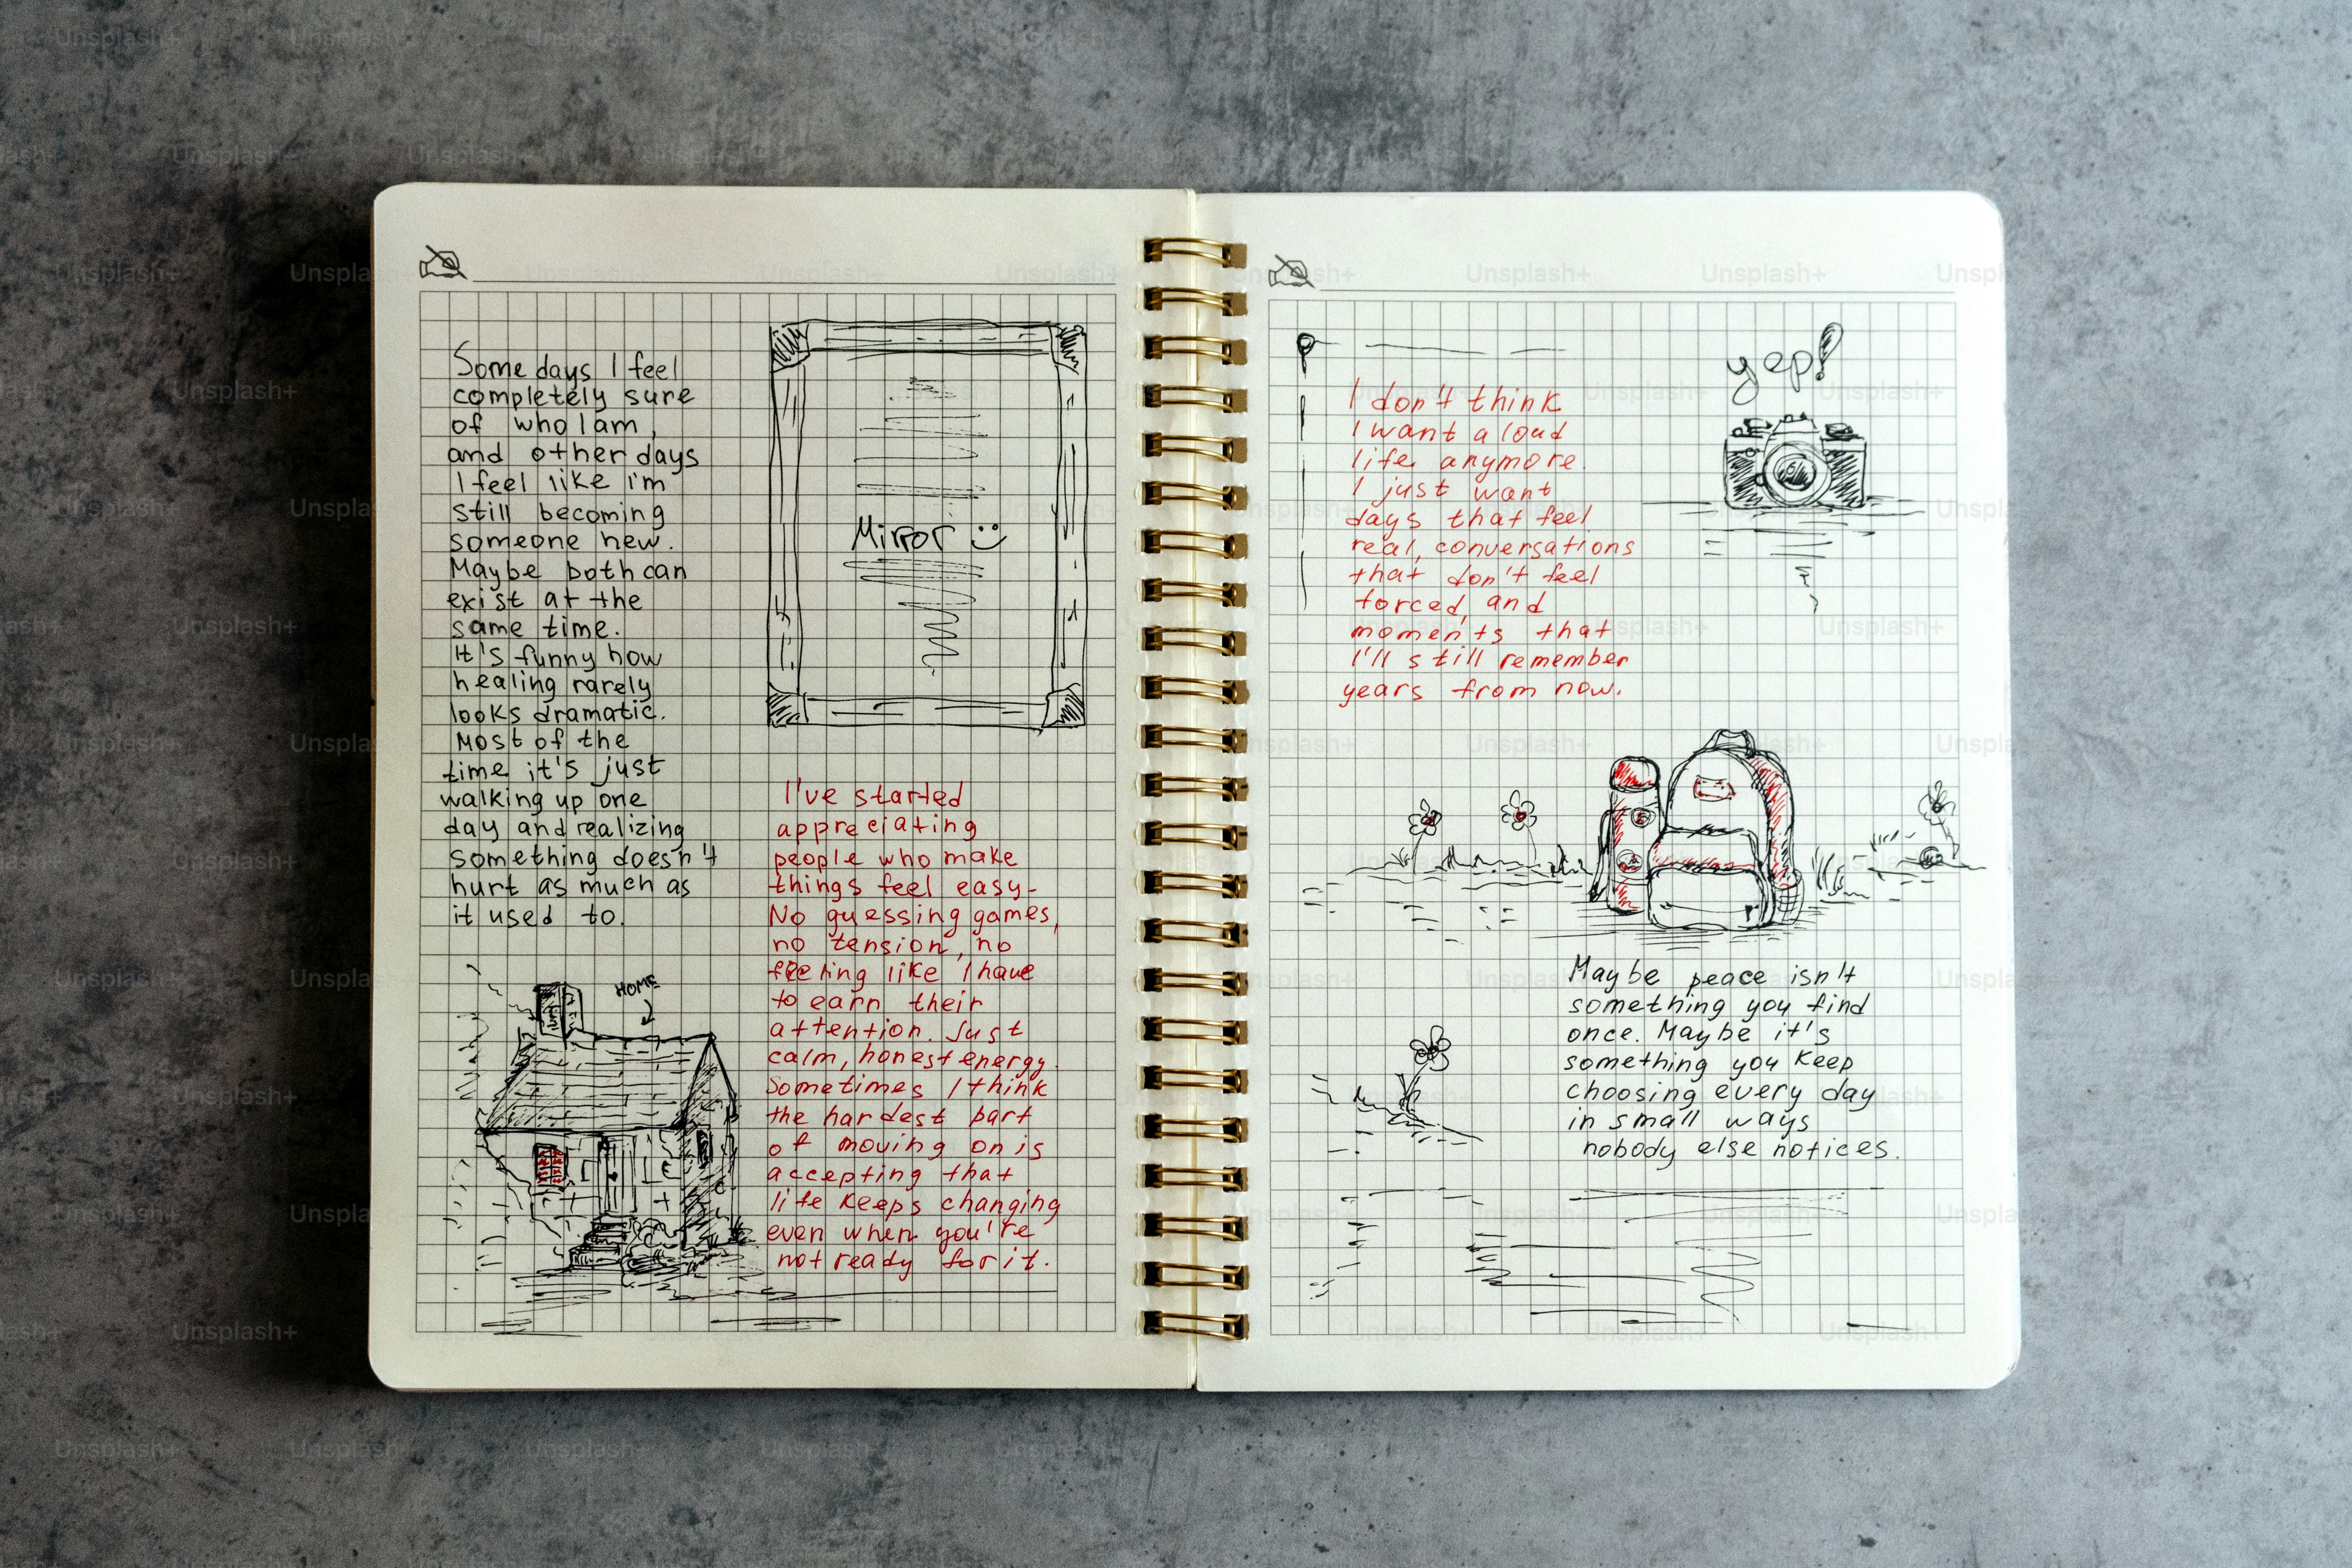 Some days I feel
completely sure
of who I am,
and other days
I feel like I'm
still becoming
someone new.
Maybe both can
exist at the
same time.
It's funny how
healing rarely
looks dramatic.
Most of the
time it's just
walking up one
day and realizing
something doesn't
hurt as much as
it used to.
HOME
Mirror
I've started
appreciating
people who make
things feel easy-
No guessing games,
no tension, no
feeling like I have
to earn their
attention. Just
calm, honest energy.
Sometimes I think
the hardest part
of moving on is
accepting that
life keeps changing
even when you're
not ready for it.
I don't think
I want a loud
life anymore.
I just want
days that feel
real, conversations
that don't feel
forced, and
moments that
I'll still remember
years from now.
yep!
Maybe peace isn't
something you find
once. Maybe it's
something you keep
choosing every day
in small ways
nobody else notices.
Unsplash+